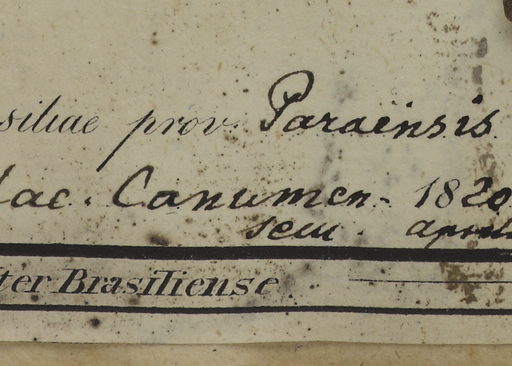 siliae prov. Paraënsis
lac. Canumen. 1820
seu. april
ter Brasiliense